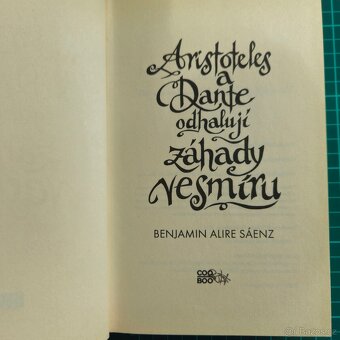 Aristoteles
a
Dante
odhalují
záhady
vesmíru
BENJAMIN ALIRE SÁENZ
COO
BOO